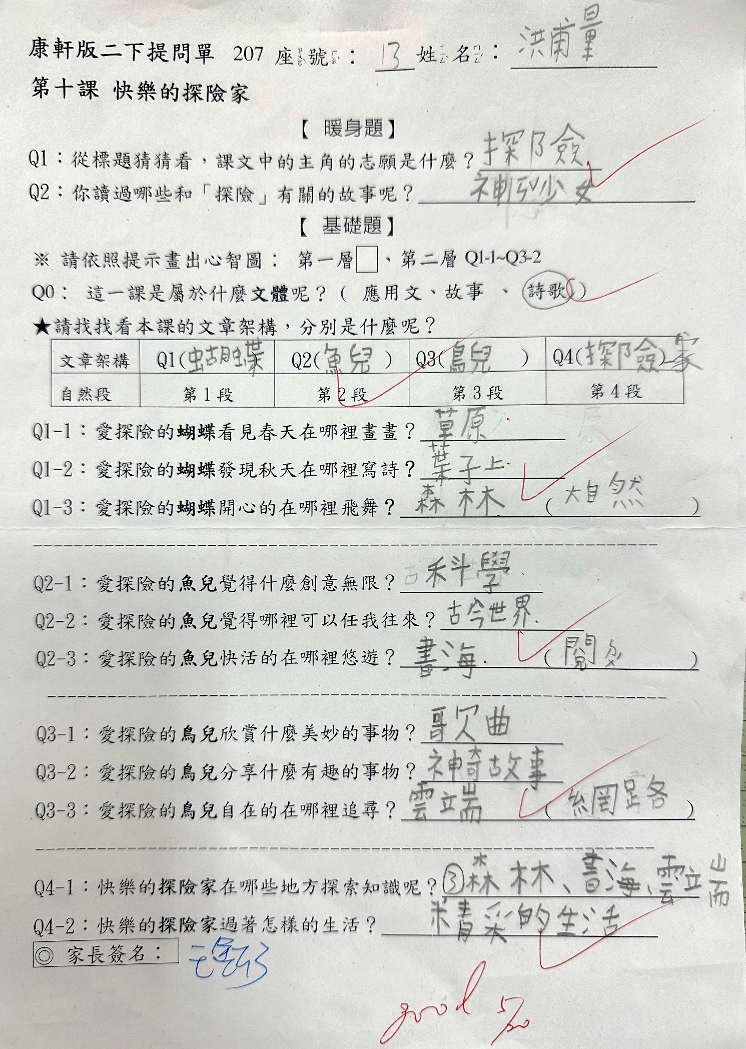 康軒版二下提問單 207 座號：13 姓名：洪甫量
第十課 快樂的探險家
【 暖身題】
Q1：從標題猜猜看，課文中的主角的志願是什麼？探險
Q2：你讀過哪些和「探險」有關的故事呢？神列少女
【 基礎題】
※ 請依照提示畫出心智圖： 第一層□、第二層 Q1-1~Q3-2
Q0： 這一課是屬於什麼文體呢？（ 應用文、故事 、 詩歌 ）
★請找找看本課的文章架構，分別是什麼呢？
文章架構 Q1(蝴蝶 Q2(魚兒 ) Q3(鳥兒 ) Q4(探險)家
自然段 第 1 段 第 2 段 第 3 段 第 4 段
Q1-1：愛探險的蝴蝶看見春天在哪裡畫畫？草原
Q1-2：愛探險的蝴蝶發現秋天在哪裡寫詩？葉子上
Q1-3：愛探險的蝴蝶開心的在哪裡飛舞？森林 (大自然 )
Q2-1：愛探險的魚兒覺得什麼創意無限？科學
Q2-2：愛探險的魚兒覺得哪裡可以任我往來？古今世界.
Q2-3：愛探險的魚兒快活的在哪裡悠遊？書海. ( 閱 )
Q3-1：愛探險的鳥兒欣賞什麼美妙的事物？歌曲
Q3-2：愛探險的鳥兒分享什麼有趣的事物？神奇故事
Q3-3：愛探險的鳥兒自在的在哪裡追尋？雲端 ( 網路 )
Q4-1：快樂的探險家在哪些地方探索知識呢？③森林、書海、雲端
Q4-2：快樂的探險家過著怎樣的生活？精彩的生活
◎ 家長簽名：
good 5/20